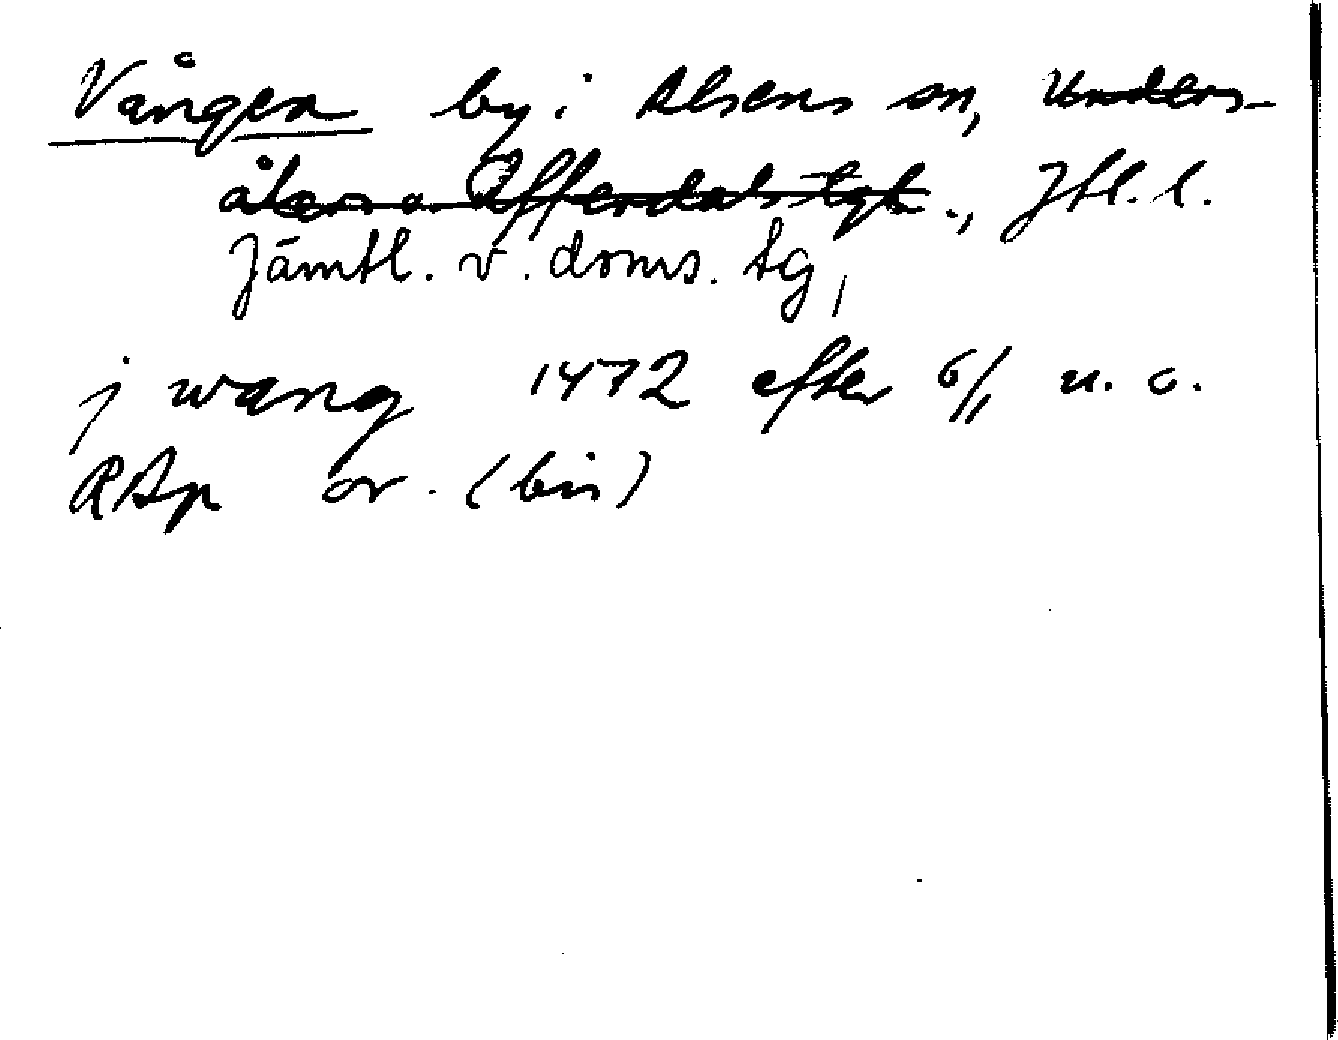 Vången by i Alsens sn, Unders-
åkers o. Offerdals tgl., Jtl. l.
Jämtl. v. doms. tg,
j wang 1472 efter 6/11 u. o.
RAp or. (bis)